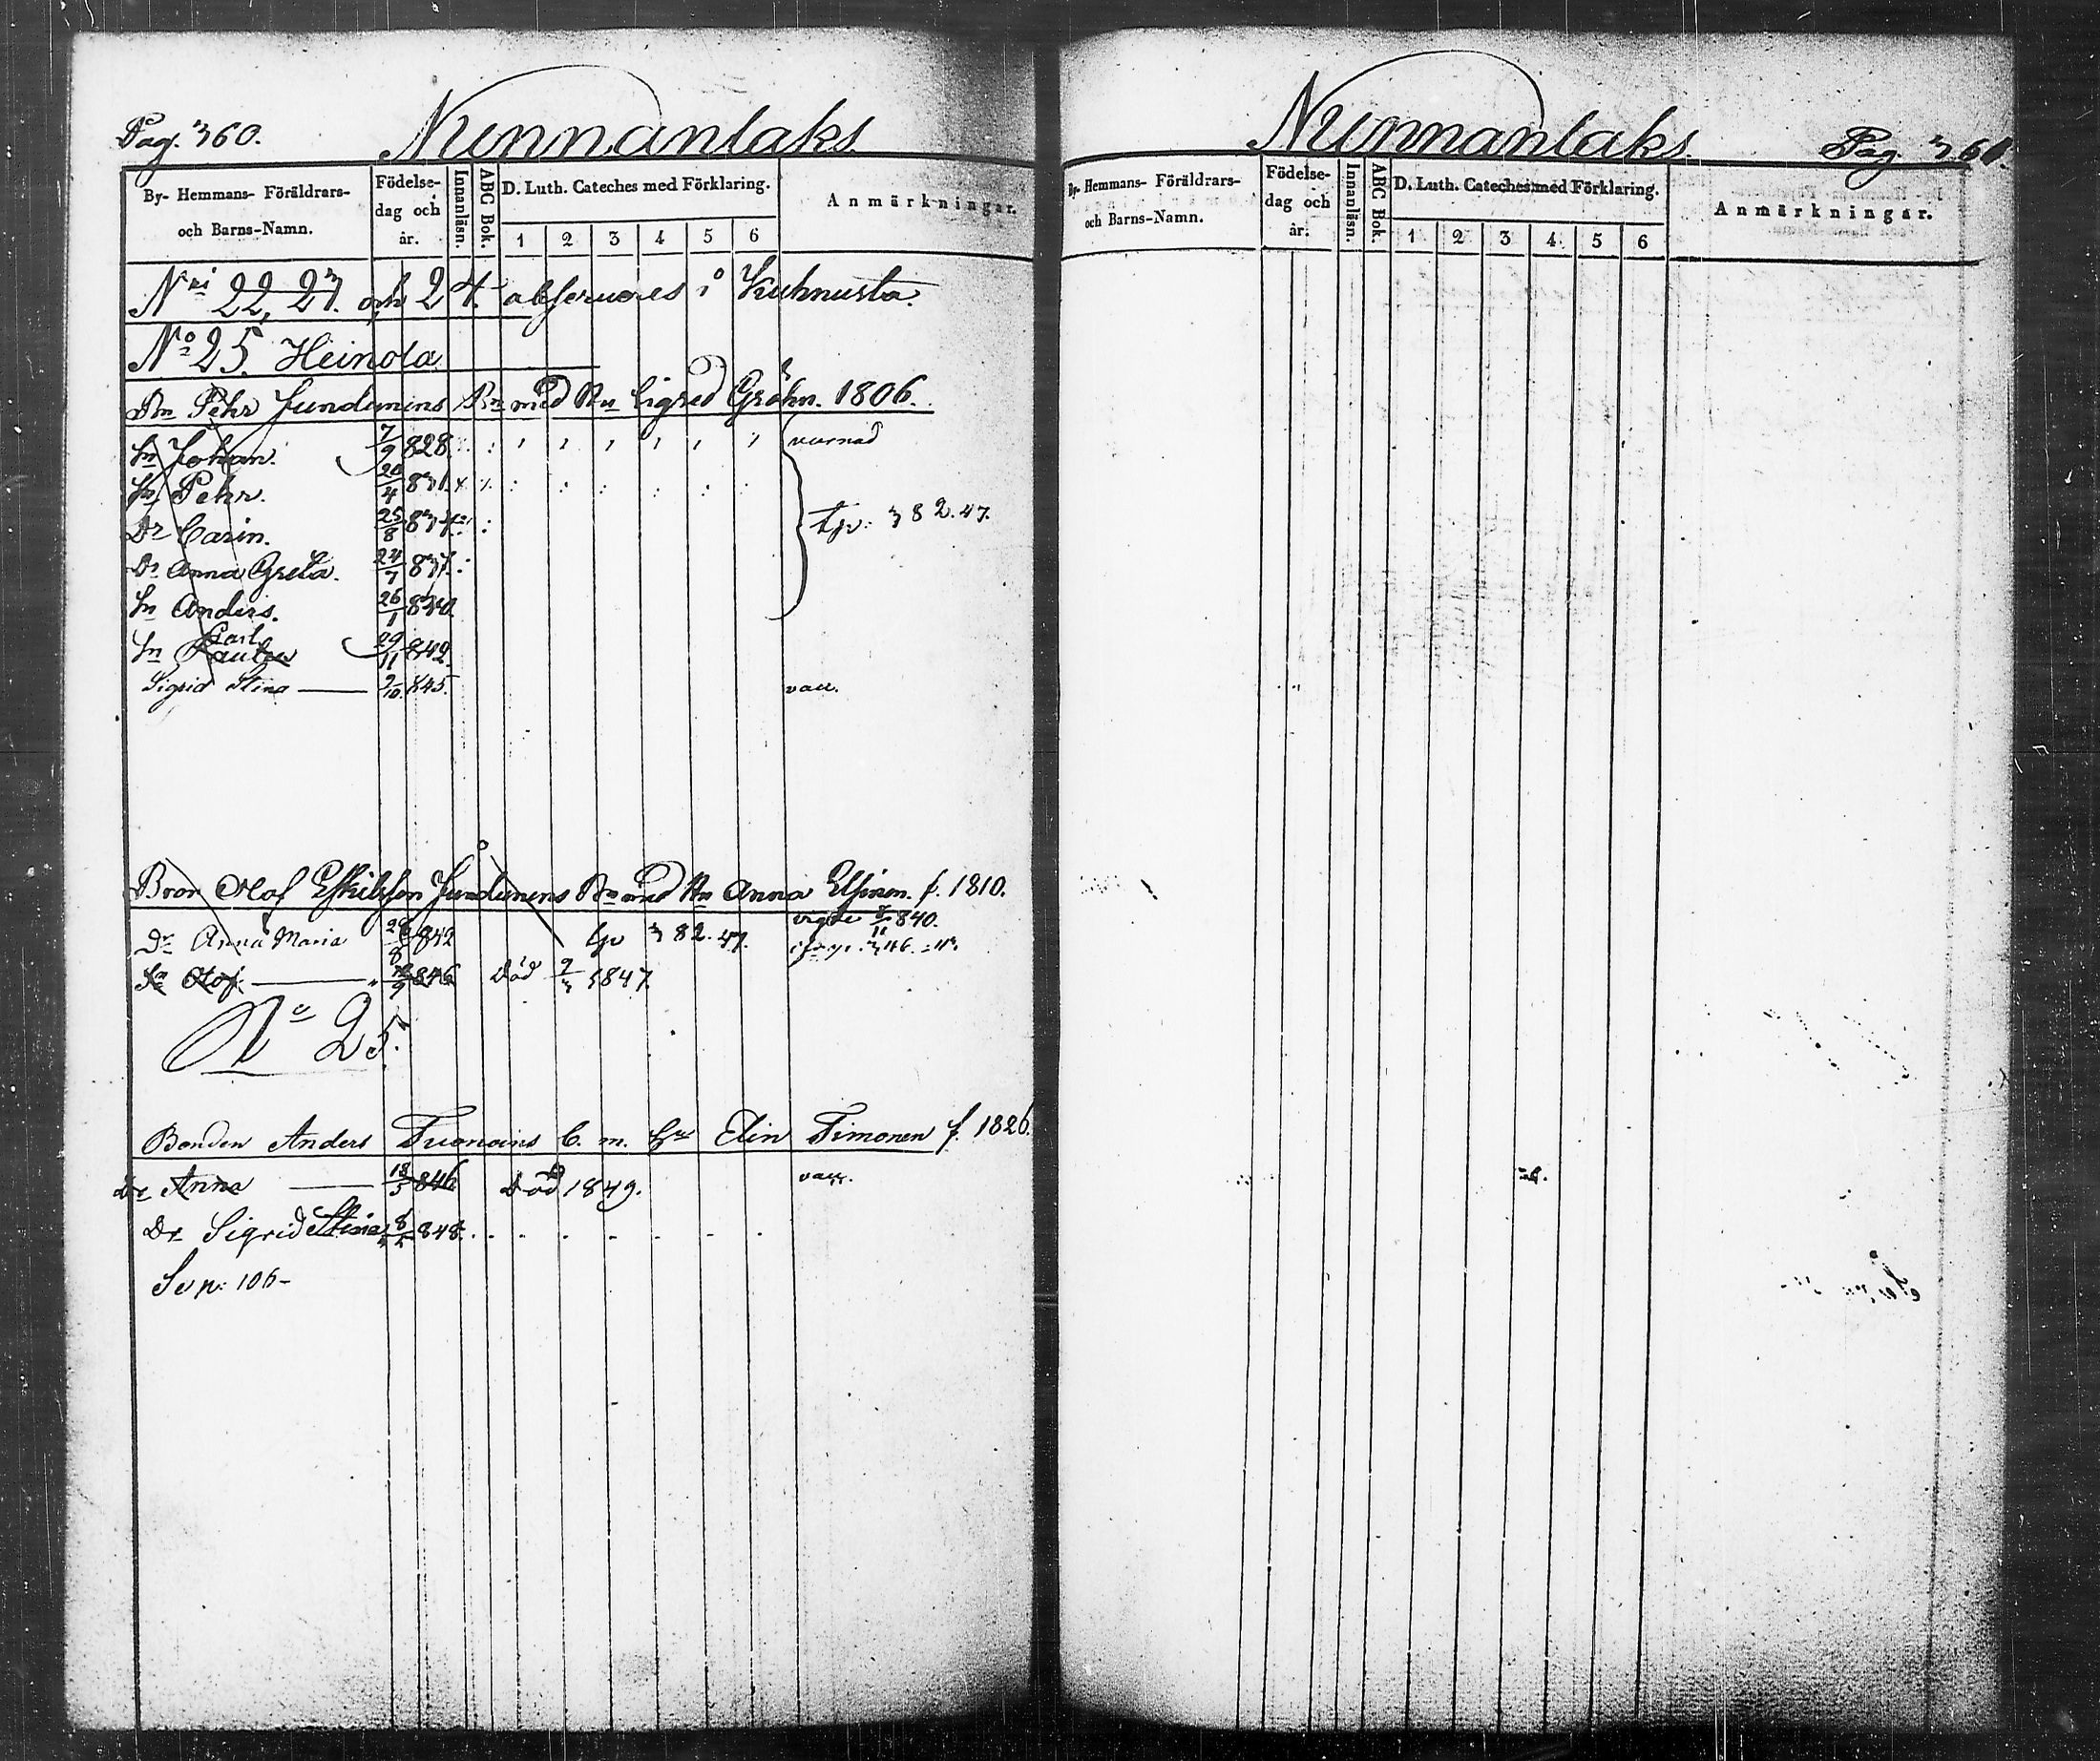 Pag. 360. Nunnanlaks
By- Hemmans- Föräldrars- och Barns-Namn. Födelse-dag och år. Innanläsn. ABC Bok. D. Luth. Cateches med Förklaring. 1 2 3 4 5 6 Anmärkningar.
Nri 22, 23. och 24. observeres i Kuhnusta.
No 25. Heinola
Bn Pehr Jundunens Bn med Hu Sigred Gröhn. 1806.
Sn Johan. 7/9 828. vacinad
Sn Pehr. 20/4 831.
Dr Carin. 25/8 834. Tp: 382.47.
Dr Anna Greta. 24/7 837.
Sn Anders. 26/1 840.
Carl
Sn Paulus 29/11 842.
Sigrid Stina 9/10. 845. vacc.
Bron Olof Eskilsson Jundunens Bn med Hu Anna f. 1810.
vigde 8/11 840.
Dr Anna Maria 28/8 842 tp 382.47.
Sn Olof. 846 Död 9/3 1847.
No 25.
Bonden Anders b. m. hu Elin Timonen f. 1826.
Dr Anna 18/5 846 Död 1849. vacc.
Dr Sigrid Stina 848.
Se p: 106-
Nunnanlaks Pag. 361.
By- Hemmans- Föräldrars- och Barns-Namn. Födelse-dag och år. Innanläsn. ABC Bok. D. Luth. Cateches med Förklaring. 1 2 3 4 5 6 Anmärkningar.